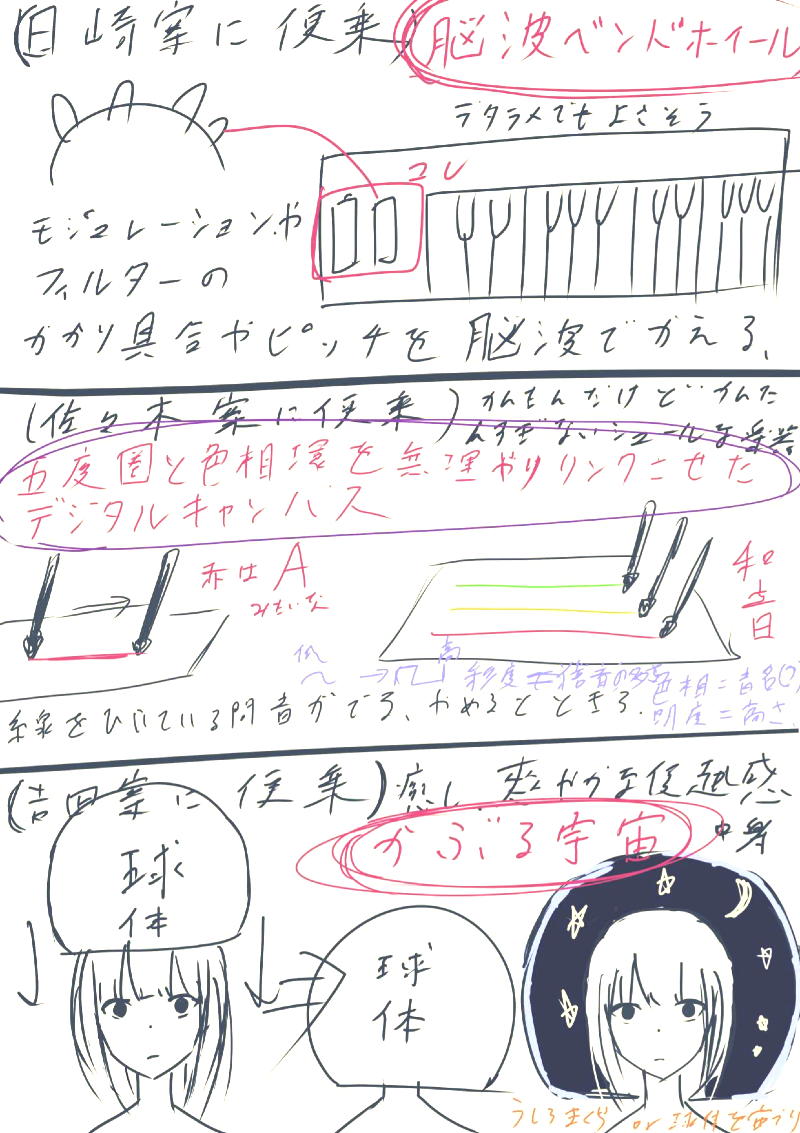 (日崎案に便乗)
脳波ベンドホイール
デタラメでもよさそう
コレ
モジュレーションや
フィルターの
かかり具合やピッチを脳波でかえる、
(佐々木案に便乗)
かんたんだけどかんた
んすぎないシュールな楽器
五度圏と色相環を無理やりリンクさせた
デジタルキャンバス
赤はA
みたいな
和音
低
高
→
彩度=倍音の
色相=音名(?)
明度=高さ
線をひいている間音がでる、やめるととぎる.
(吉田案に便乗)
癒し 爽やかな
感
かぶる宇宙
中身
球体
球体
うしろまくら or 球体を宙づり